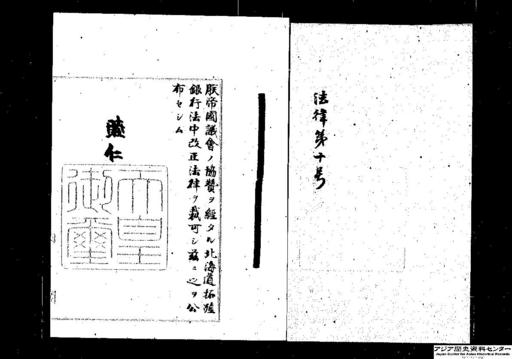 法律第十号
朕帝國議會ノ協賛ヲ經タル北海道拓殖
銀行法中改正法律ヲ裁可シ茲ニ之ヲ公
布セシム
睦仁
天皇
御璽
アジア歴史資料センター
Japan Center for Asian Historical Records